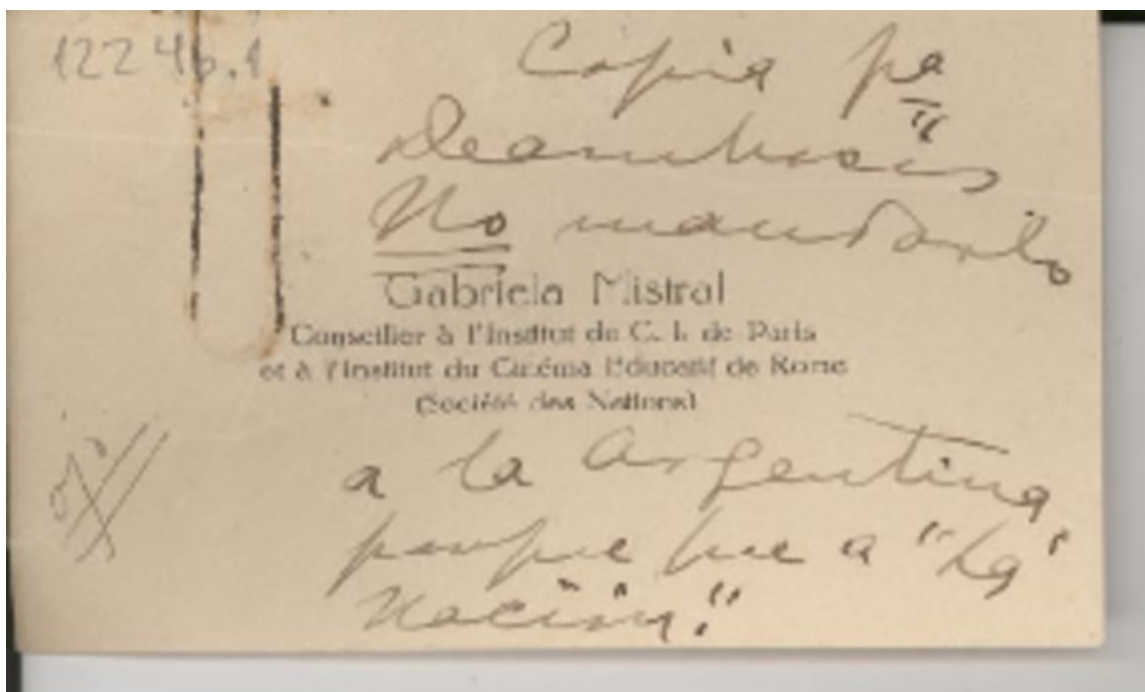 12246.1
Copia pa
Deambrosis
No mandarlo
Gabriela Mistral
Conseiller à l'Institut de C. I. de Paris
et à l'Institut du Cinéma Educatif de Rome
(Société des Nations)
a la Argentina
porque fue a "La
Nación".